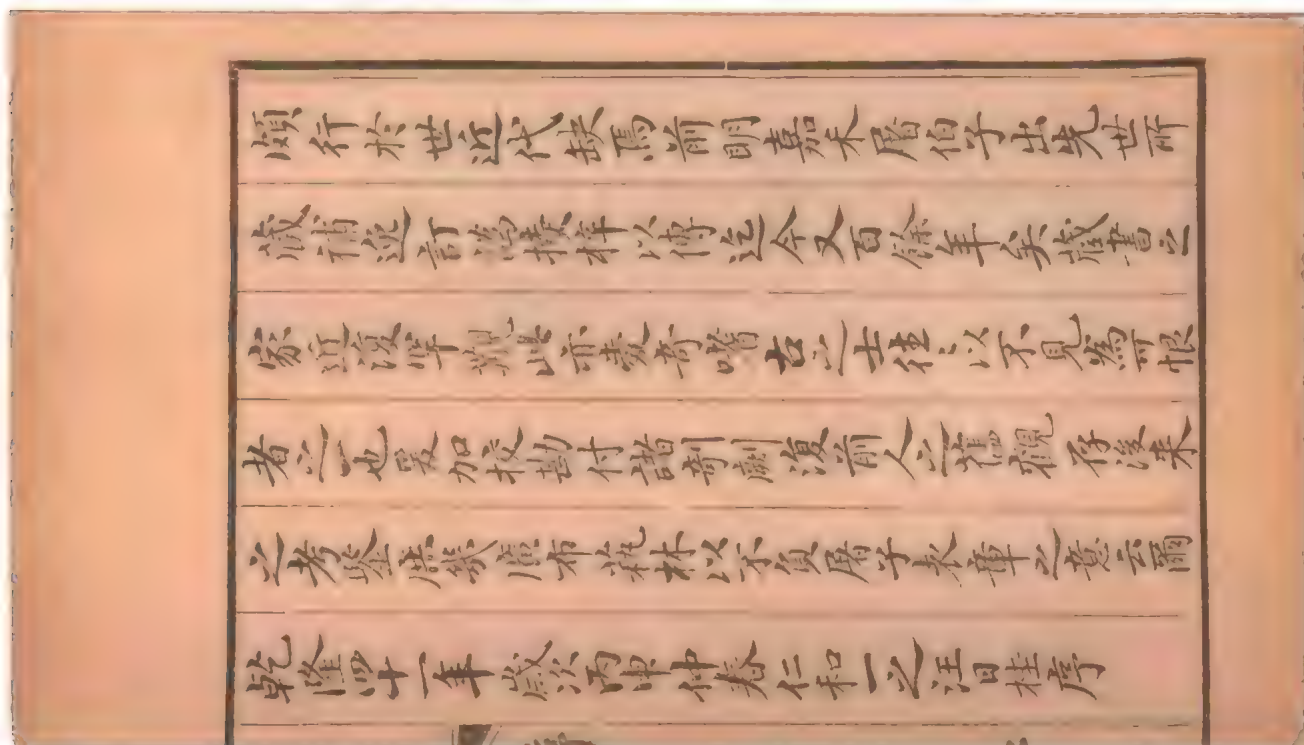 頗行於世近代缺焉前明嘉禾屠伯子出先世所
藏補逸訂譌授梓以傳迄今又百餘年矣藏書之
家近復罕覯奇嗜古之士往〻以不見為可恨
者之一也爰加校勘付諸剞劂復前人之舊觀存後来
之考鑒庶幾廣布藝林以不負屠子表章之意云爾
乾隆四十一年歲次丙申仲春仁和一之汪日桂序